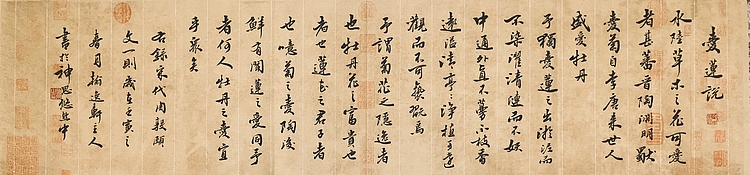 愛蓮說
水陸草木之花可愛
者甚蕃晉陶淵明獨
愛菊自李唐來世人
盛愛牡丹
予獨愛蓮之出淤泥而
不染濯清漣而不妖
中通外直不蔓不枝香
遠益清亭亭淨植可遠
觀而不可褻翫焉
予謂菊花之隱逸者
也牡丹花之富貴也
者也蓮花之君子者
也噫菊之愛陶後
鮮有聞蓮之愛同予
者何人牡丹之愛宜
乎衆矣
右錄宋代周敦頤
文一則歲在壬寅之
春月翰逸軒主人
書於神思悠中